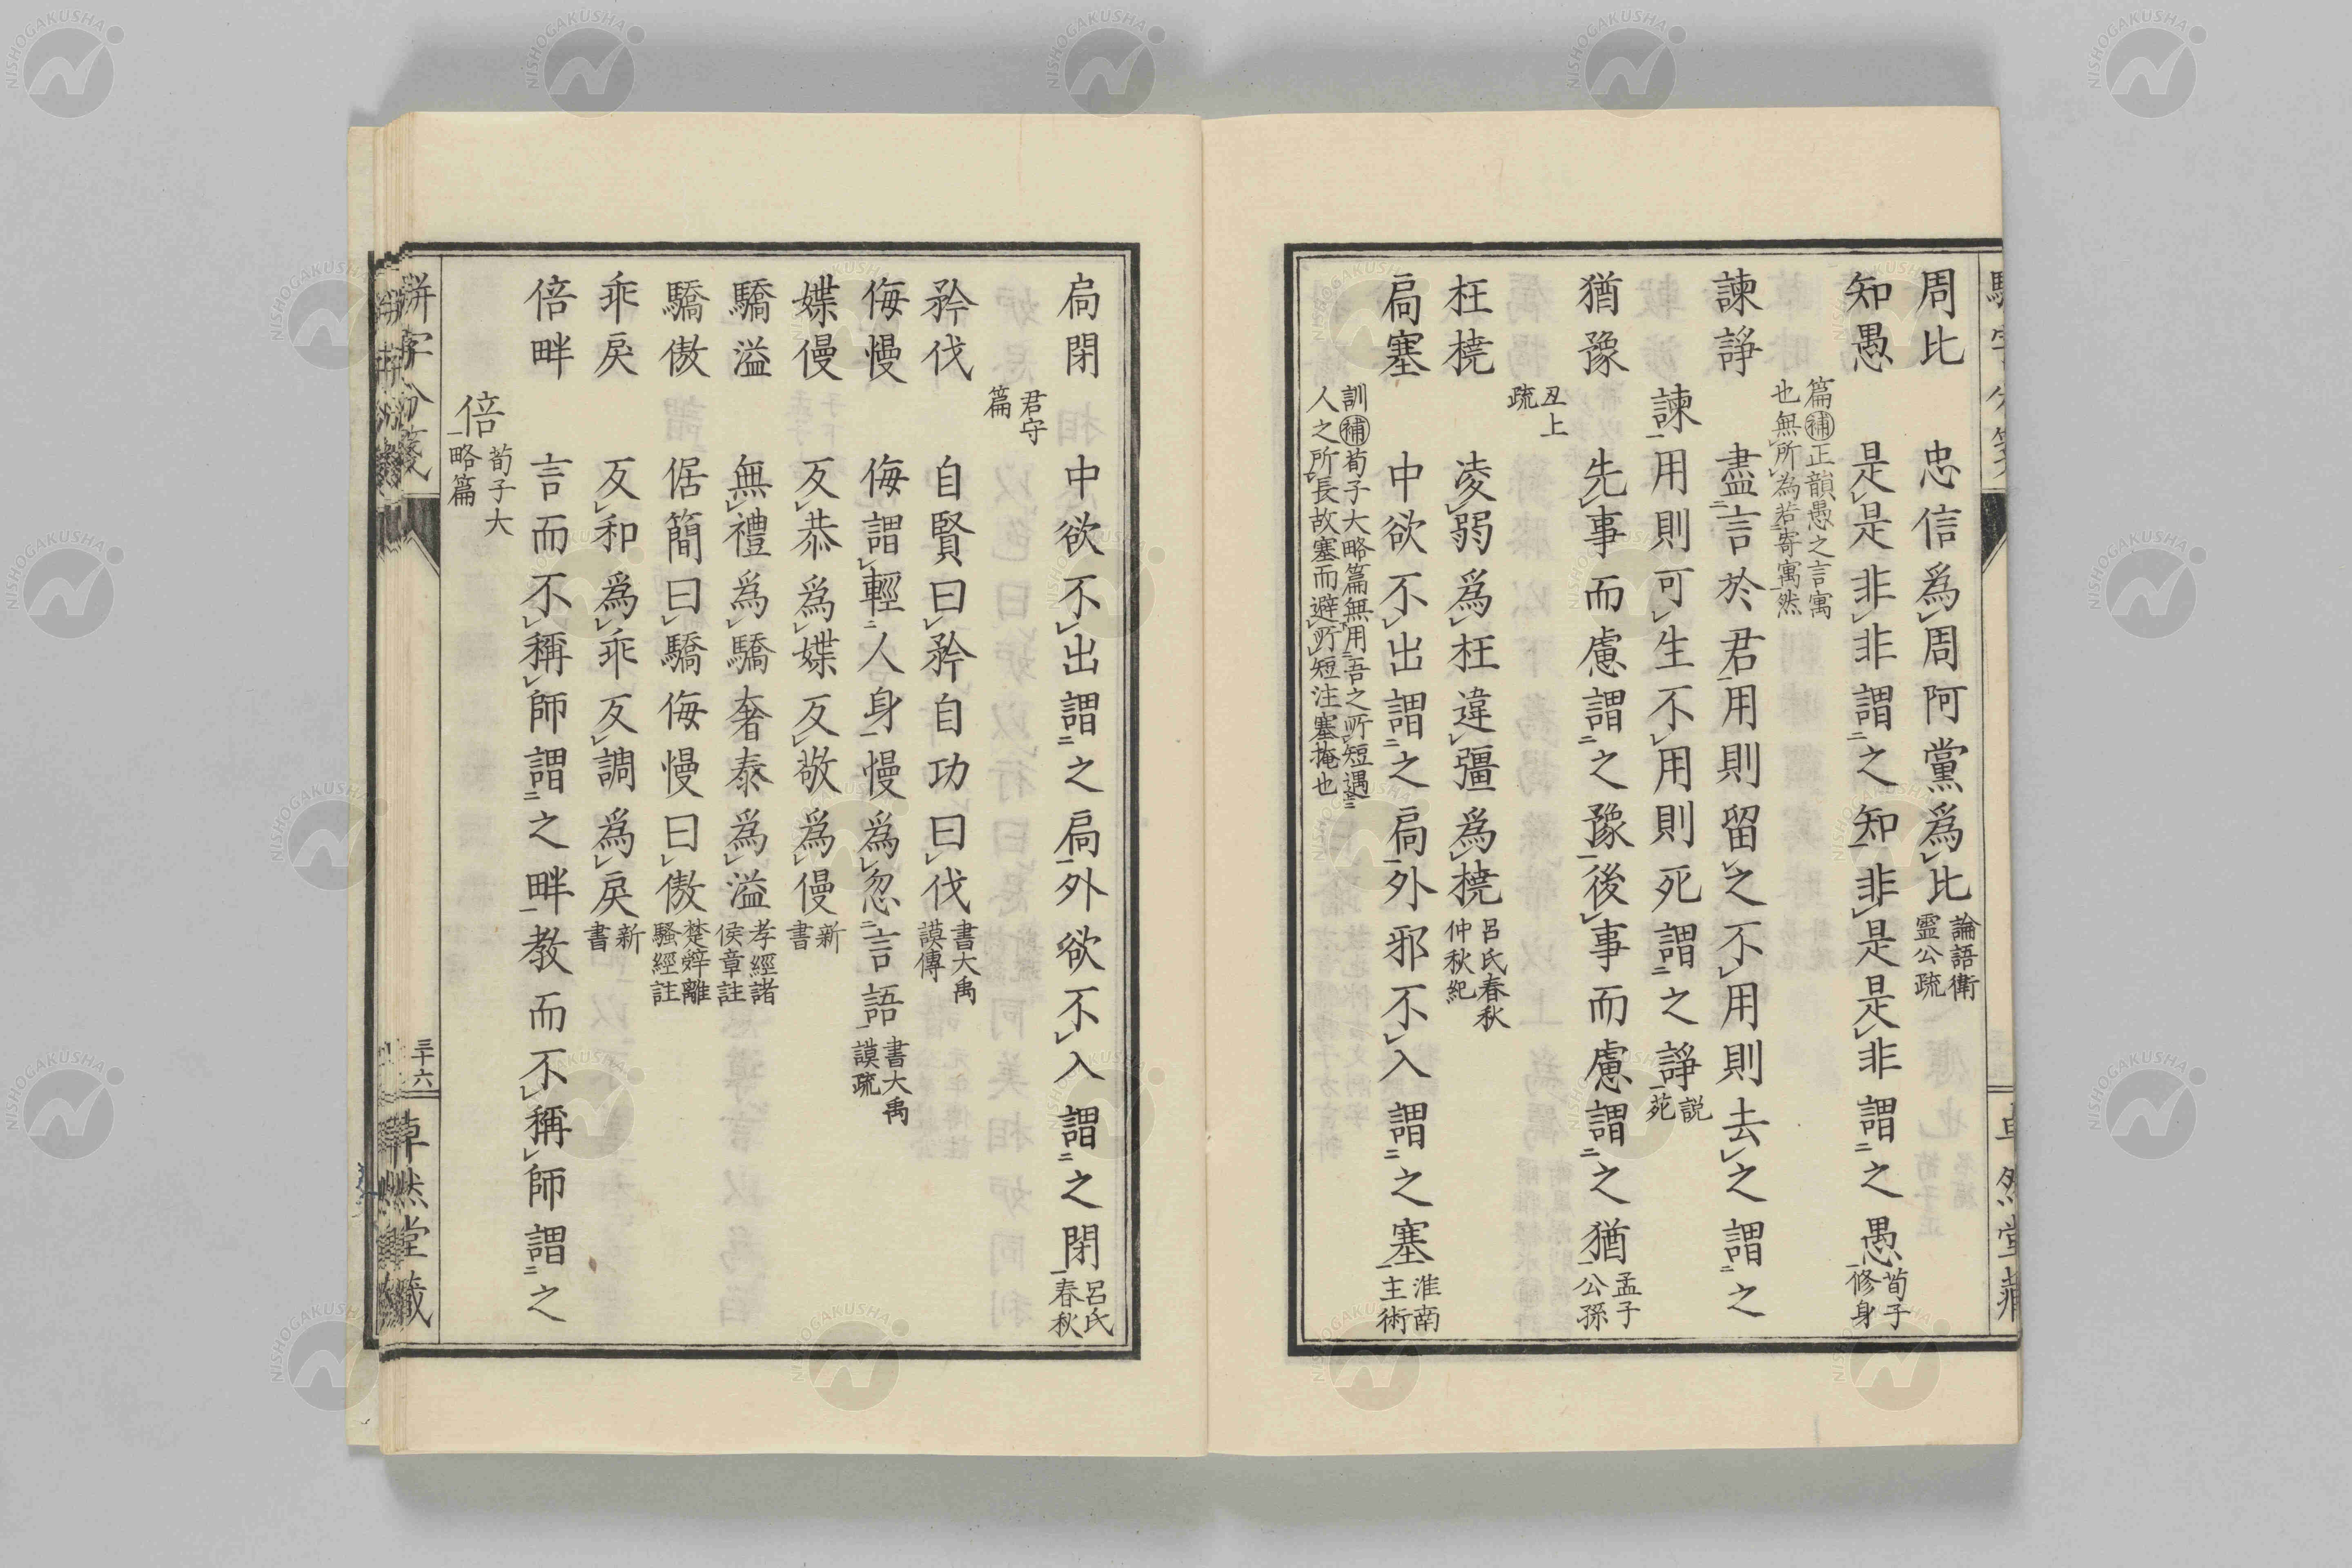 周比　忠信爲周阿黨爲比論語衛靈公疏
知愚　是是非非謂之知非是是非謂之愚荀子修身
篇補正韻愚之言寓也無所為若寄寓然
諫諍　盡言於君用則留之不用則去之謂之
諫用則可生不用則死謂之諍説苑
猶豫　先事而慮謂之豫後事而慮謂之猶孟子公孫
丑上疏
枉橈　凌弱爲枉違彊爲橈呂氏春秋仲秋紀
扄塞　中欲不出謂之扄外邪不入謂之塞淮南主術
訓補荀子大略篇無用吾之所短遇人之所長故塞而避所短注塞掩也
扄閉　中欲不出謂之扄外欲不入謂之閉呂氏春秋
君守篇
矜伐　自賢曰矜自功曰伐書大禹謨傳
侮慢　侮謂輕人身慢爲忽言語書大禹謨疏
媟僈　反恭爲媟反敬爲僈新書
驕溢　無禮爲驕奢泰爲溢孝經諸侯章註
驕傲　倨簡曰驕侮慢曰傲楚辭離騷經註
乖戾　反和爲乖反調爲戾新書
倍畔　言而不稱師謂之畔教而不稱師謂之
倍荀子大略篇
騈字分箋
三十六
卓然堂藏
NISHOGAKUSHA